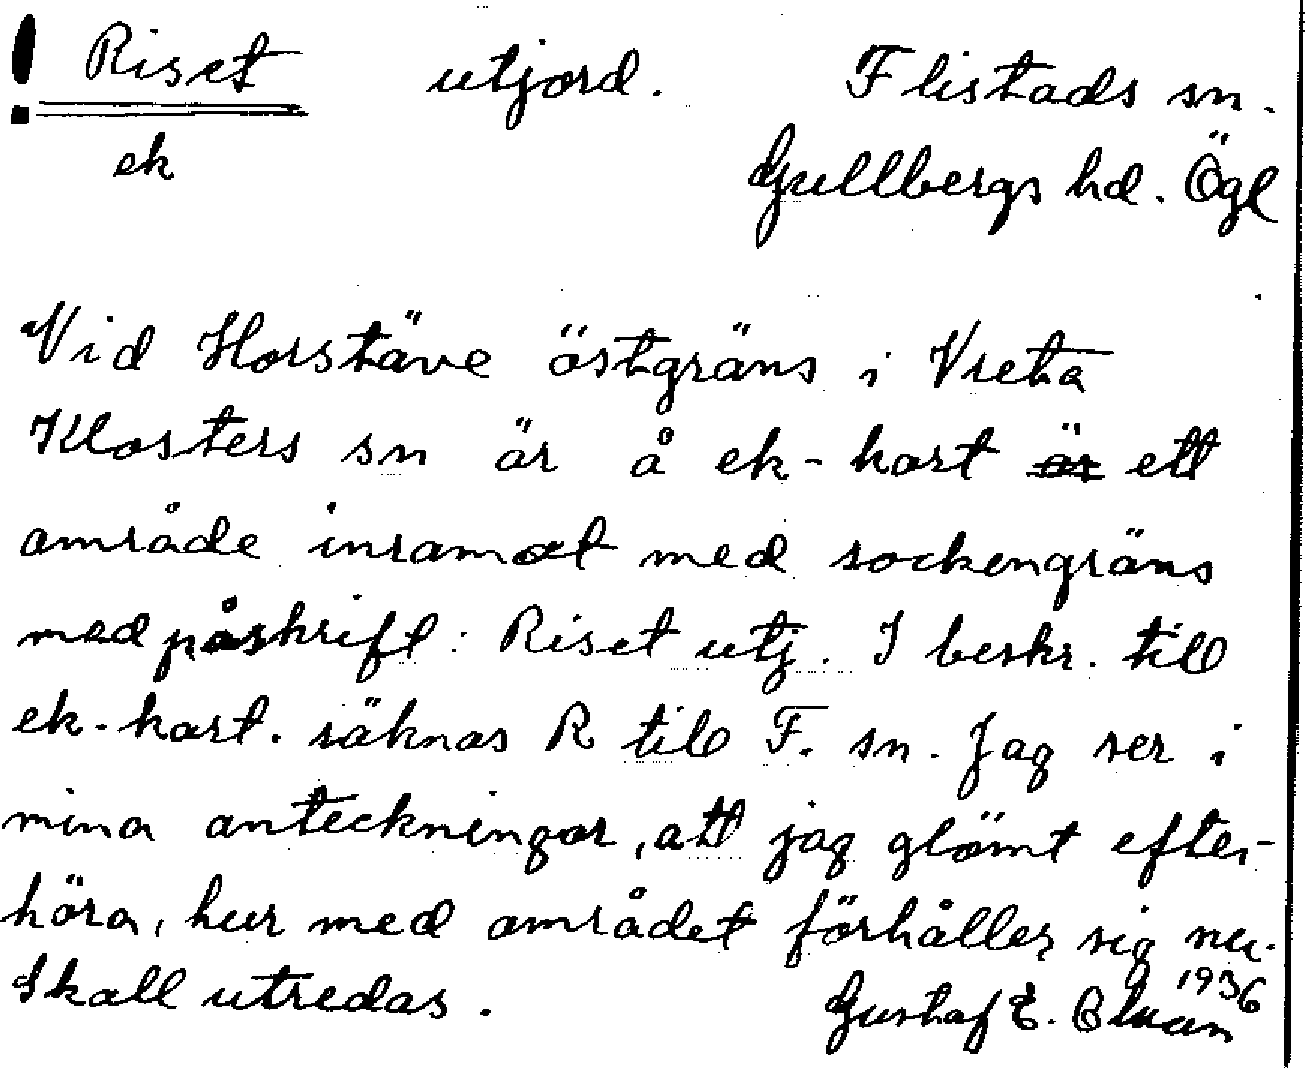 ! Riset utjord. Flistads sn.
ek Gullbergs hd. Ögl
Vid Horstäve östgräns i Vreta
Klosters sn är å ek-kart är ett
område inramat med sockengräns
med påskrift: Riset utj. I beskr. till
ek-kart. räknas R till F. sn. Jag ser i
mina anteckningar, att jag glömt efter-
höra, hur med området förhåller sig nu.
Skall utredas. 1936
Gustaf E.